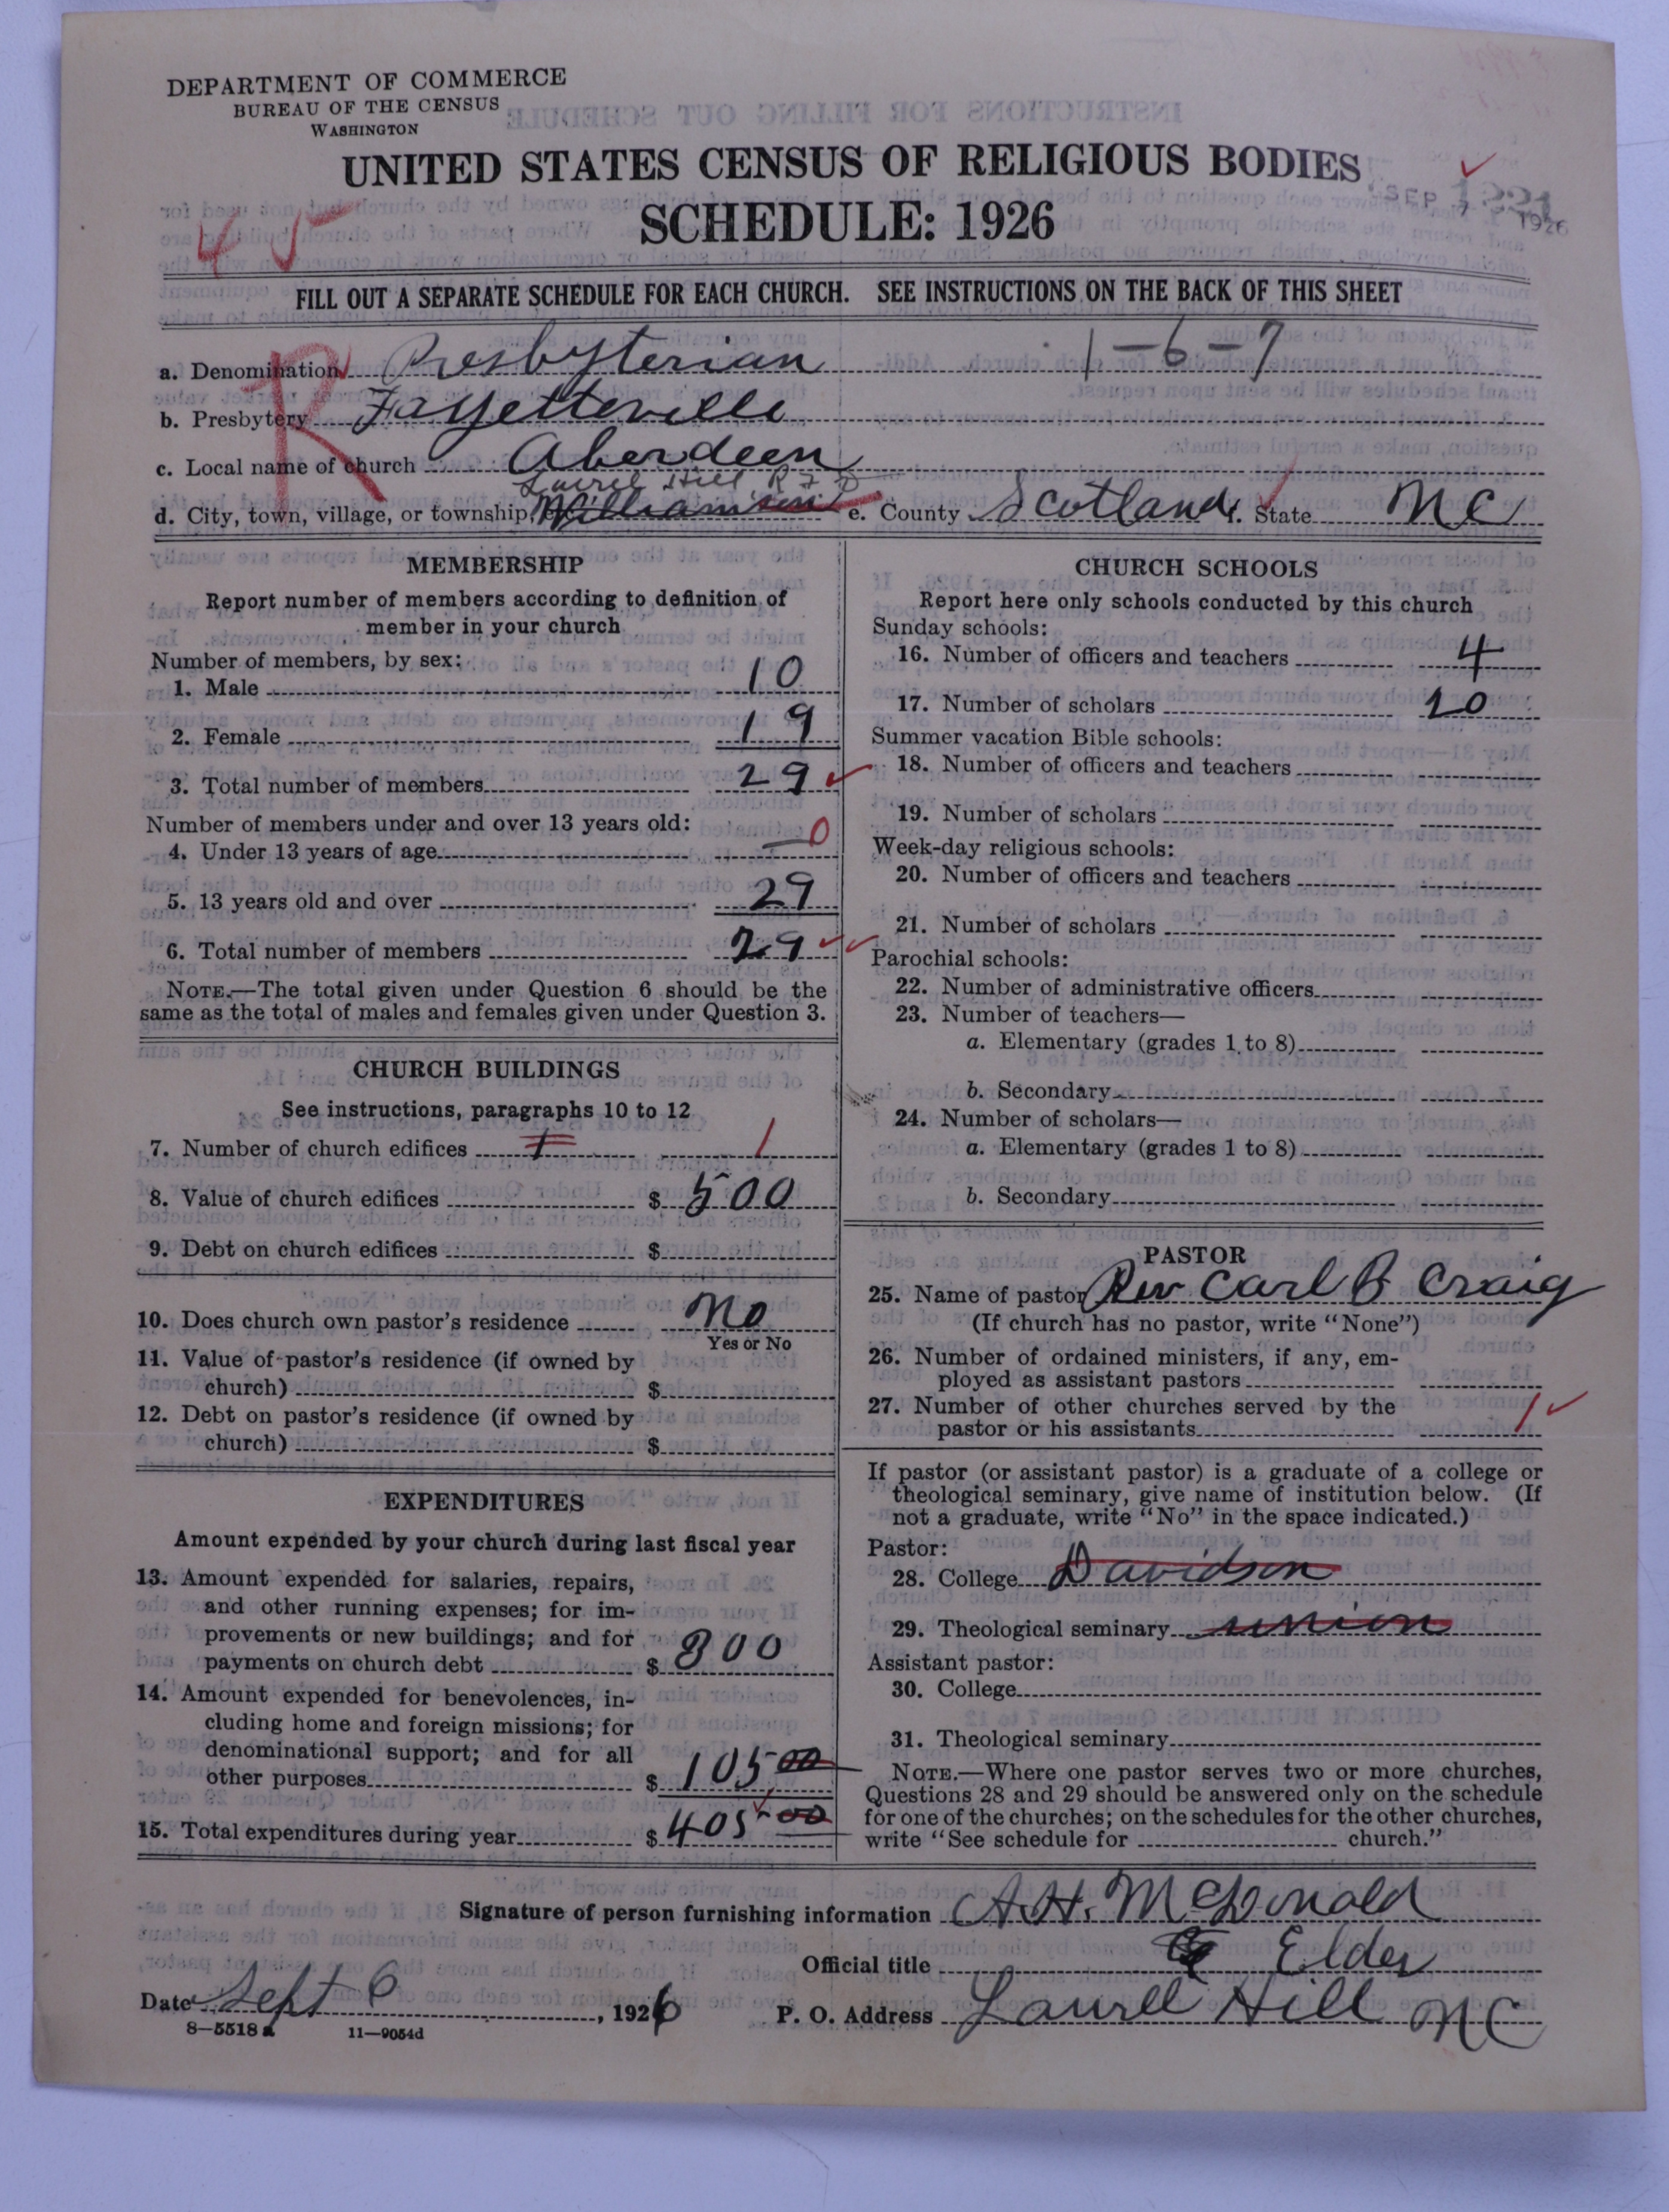 DEPARTMENT OF COMMERCE
BUREAU OF THE CENSUS
WASHINGTON
UNITED STATES CENSUS OF RELIGIOUS BODIES
SCHEDULE: 1926
SEP 7 1926
45
FILL OUT A SEPARATE SCHEDULE FOR EACH CHURCH. SEE INSTRUCTIONS ON THE BACK OF THIS SHEET
R
a. Denomination Presbyterian 1-6-7
b. Presbytery Fayetteville
c. Local name of church Aberdeen
Laurel Hill R F D
d. City, town, village, or township, etc. Williamson e. County Scotland f. State NC
MEMBERSHIP
Report number of members according to definition of
member in your church
Number of members, by sex:
1. Male 10
2. Female 19
3. Total number of members 29
Number of members under and over 13 years old:
4. Under 13 years of age 0
5. 13 years old and over 29
6. Total number of members 29
NOTE.—The total given under Question 6 should be the
same as the total of males and females given under Question 3.
CHURCH BUILDINGS
See instructions, paragraphs 10 to 12
7. Number of church edifices 1 1
8. Value of church edifices $ 500
9. Debt on church edifices $
10. Does church own pastor's residence No
Yes or No
11. Value of pastor's residence (if owned by
church) $
12. Debt on pastor's residence (if owned by
church) $
EXPENDITURES
Amount expended by your church during last fiscal year
13. Amount expended for salaries, repairs,
and other running expenses; for im-
provements or new buildings; and for
payments on church debt $ 300
14. Amount expended for benevolences, in-
cluding home and foreign missions; for
denominational support; and for all
other purposes $ 105 00
15. Total expenditures during year $ 405 00
CHURCH SCHOOLS
Report here only schools conducted by this church
Sunday schools:
16. Number of officers and teachers 4
17. Number of scholars 20
Summer vacation Bible schools:
18. Number of officers and teachers
19. Number of scholars
Week-day religious schools:
20. Number of officers and teachers
21. Number of scholars
Parochial schools:
22. Number of administrative officers
23. Number of teachers—
a. Elementary (grades 1 to 8)
b. Secondary
24. Number of scholars—
a. Elementary (grades 1 to 8)
b. Secondary
PASTOR
25. Name of pastor Rev Carl B Craig
(If church has no pastor, write "None")
26. Number of ordained ministers, if any, em-
ployed as assistant pastors
27. Number of other churches served by the
pastor or his assistants 1
If pastor (or assistant pastor) is a graduate of a college or
theological seminary, give name of institution below. (If
not a graduate, write "No" in the space indicated.)
Pastor:
28. College Davidson
29. Theological seminary Union
Assistant pastor:
30. College
31. Theological seminary
NOTE.—Where one pastor serves two or more churches,
Questions 28 and 29 should be answered only on the schedule
for one of the churches; on the schedules for the other churches,
write "See schedule for church."
Signature of person furnishing information A. H. McDonald
Official title Elder
Date Sept 6, 1926 P. O. Address Laurel Hill NC
8—5518 a 11—9054d